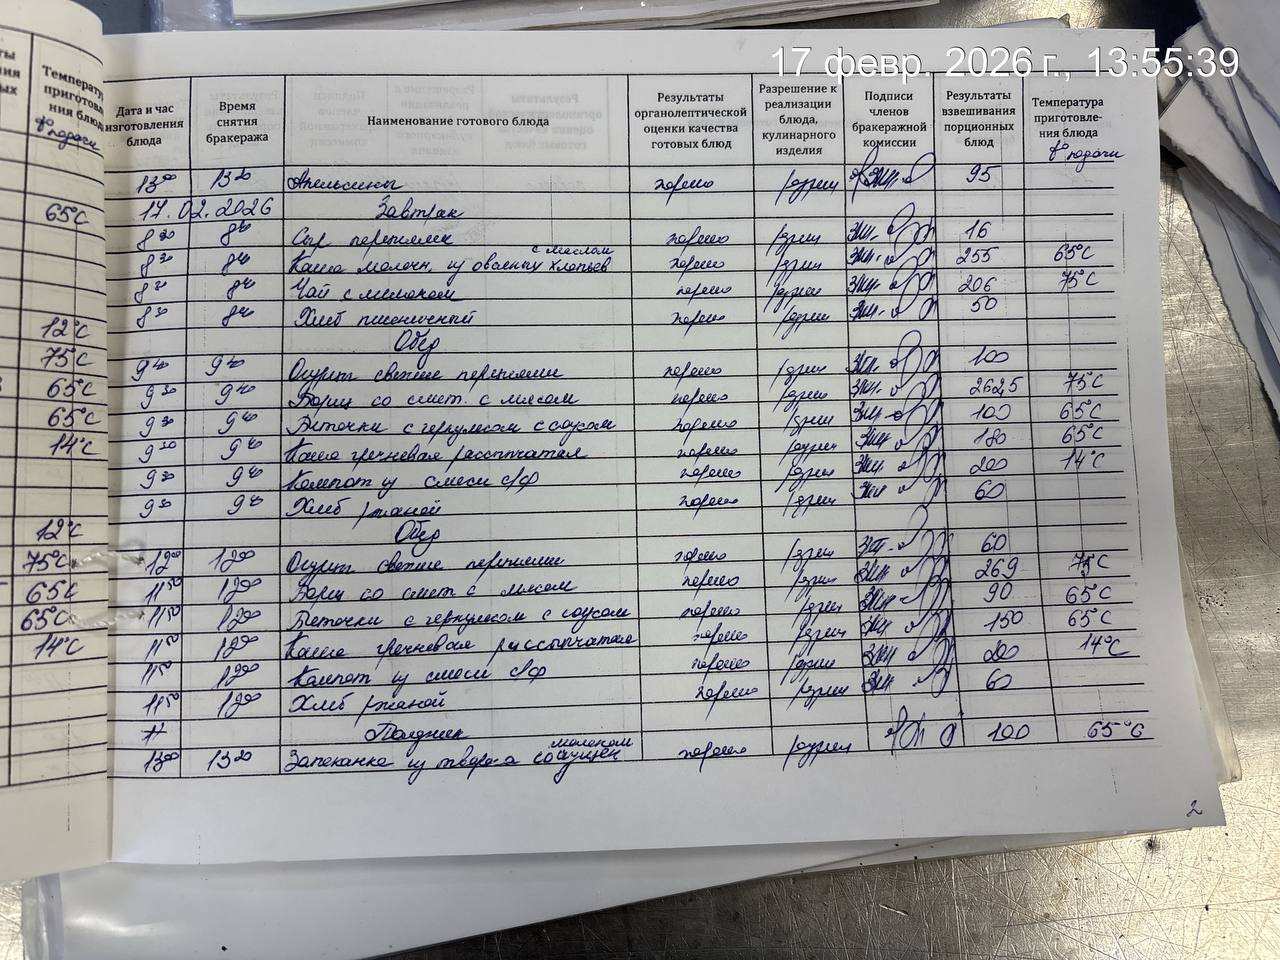 17 февр. 2026 г., 13:55:39
Температу
приготовл
ния блюд
t° подачи
65°С
12°С
75°С
65°С
65°С
14°С
12°С
75°С
65°С
65°С
14°С
Дата и час изготовления блюда Время снятия бракеража Наименование готового блюда Результаты органолептической оценки качества готовых блюд Разрешение к реализации блюда, кулинарного изделия Подписи членов бракеражной комиссии Результаты взвешивания порционных блюд Температура приготовле- ния блюда t° подачи
13⁰⁰ 13²⁰ Апельсины хорошо разреш 95
17.02.2026 Завтрак
8³⁰ 8⁴⁰ Сыр порциями хорошо разреш 16
8³⁰ 8⁴⁰ Каша молочн. из овсяных хлопьев с маслом хорошо разреш 255 65°С
8³⁰ 8⁴⁰ Чай с молоком хорошо разреш 206 75°С
8³⁰ 8⁴⁰ Хлеб пшеничный хорошо разреш 50
Обед
9⁴⁰ 9⁴⁰ Огурцы свежие порциями хорошо разреш 100
9³⁰ 9⁴⁰ Борщ со смет. с мясом хорошо разреш 262,5 75°С
9³⁰ 9⁴⁰ Биточки с геркулесом с соусом хорошо разреш 100 65°С
9³⁰ 9⁴⁰ Каша гречневая рассыпчатая хорошо разреш 180 65°С
9³⁰ 9⁴⁰ Компот из смеси с/ф хорошо разреш 200 14°С
9³⁰ 9⁴⁰ Хлеб ржаной хорошо разреш 60
Обед
12⁰⁰ 12⁰⁰ Огурцы свежие порциями хорошо разреш 60
11⁵⁰ 12⁰⁰ Борщ со смет. с мясом хорошо разреш 269 75°С
11⁵⁰ 12⁰⁰ Биточки с геркулесом с соусом хорошо разреш 90 65°С
11⁵⁰ 12⁰⁰ Каша гречневая рассыпчатая хорошо разреш 150 65°С
11⁵⁰ 12⁰⁰ Компот из смеси с/ф хорошо разреш 200 14°С
11⁵⁰ 12⁰⁰ Хлеб ржаной хорошо разреш 60
Полдник
13⁰⁰ 13²⁰ Запеканка из творога со сгущен молоком хорошо разреш 100 65°С
2